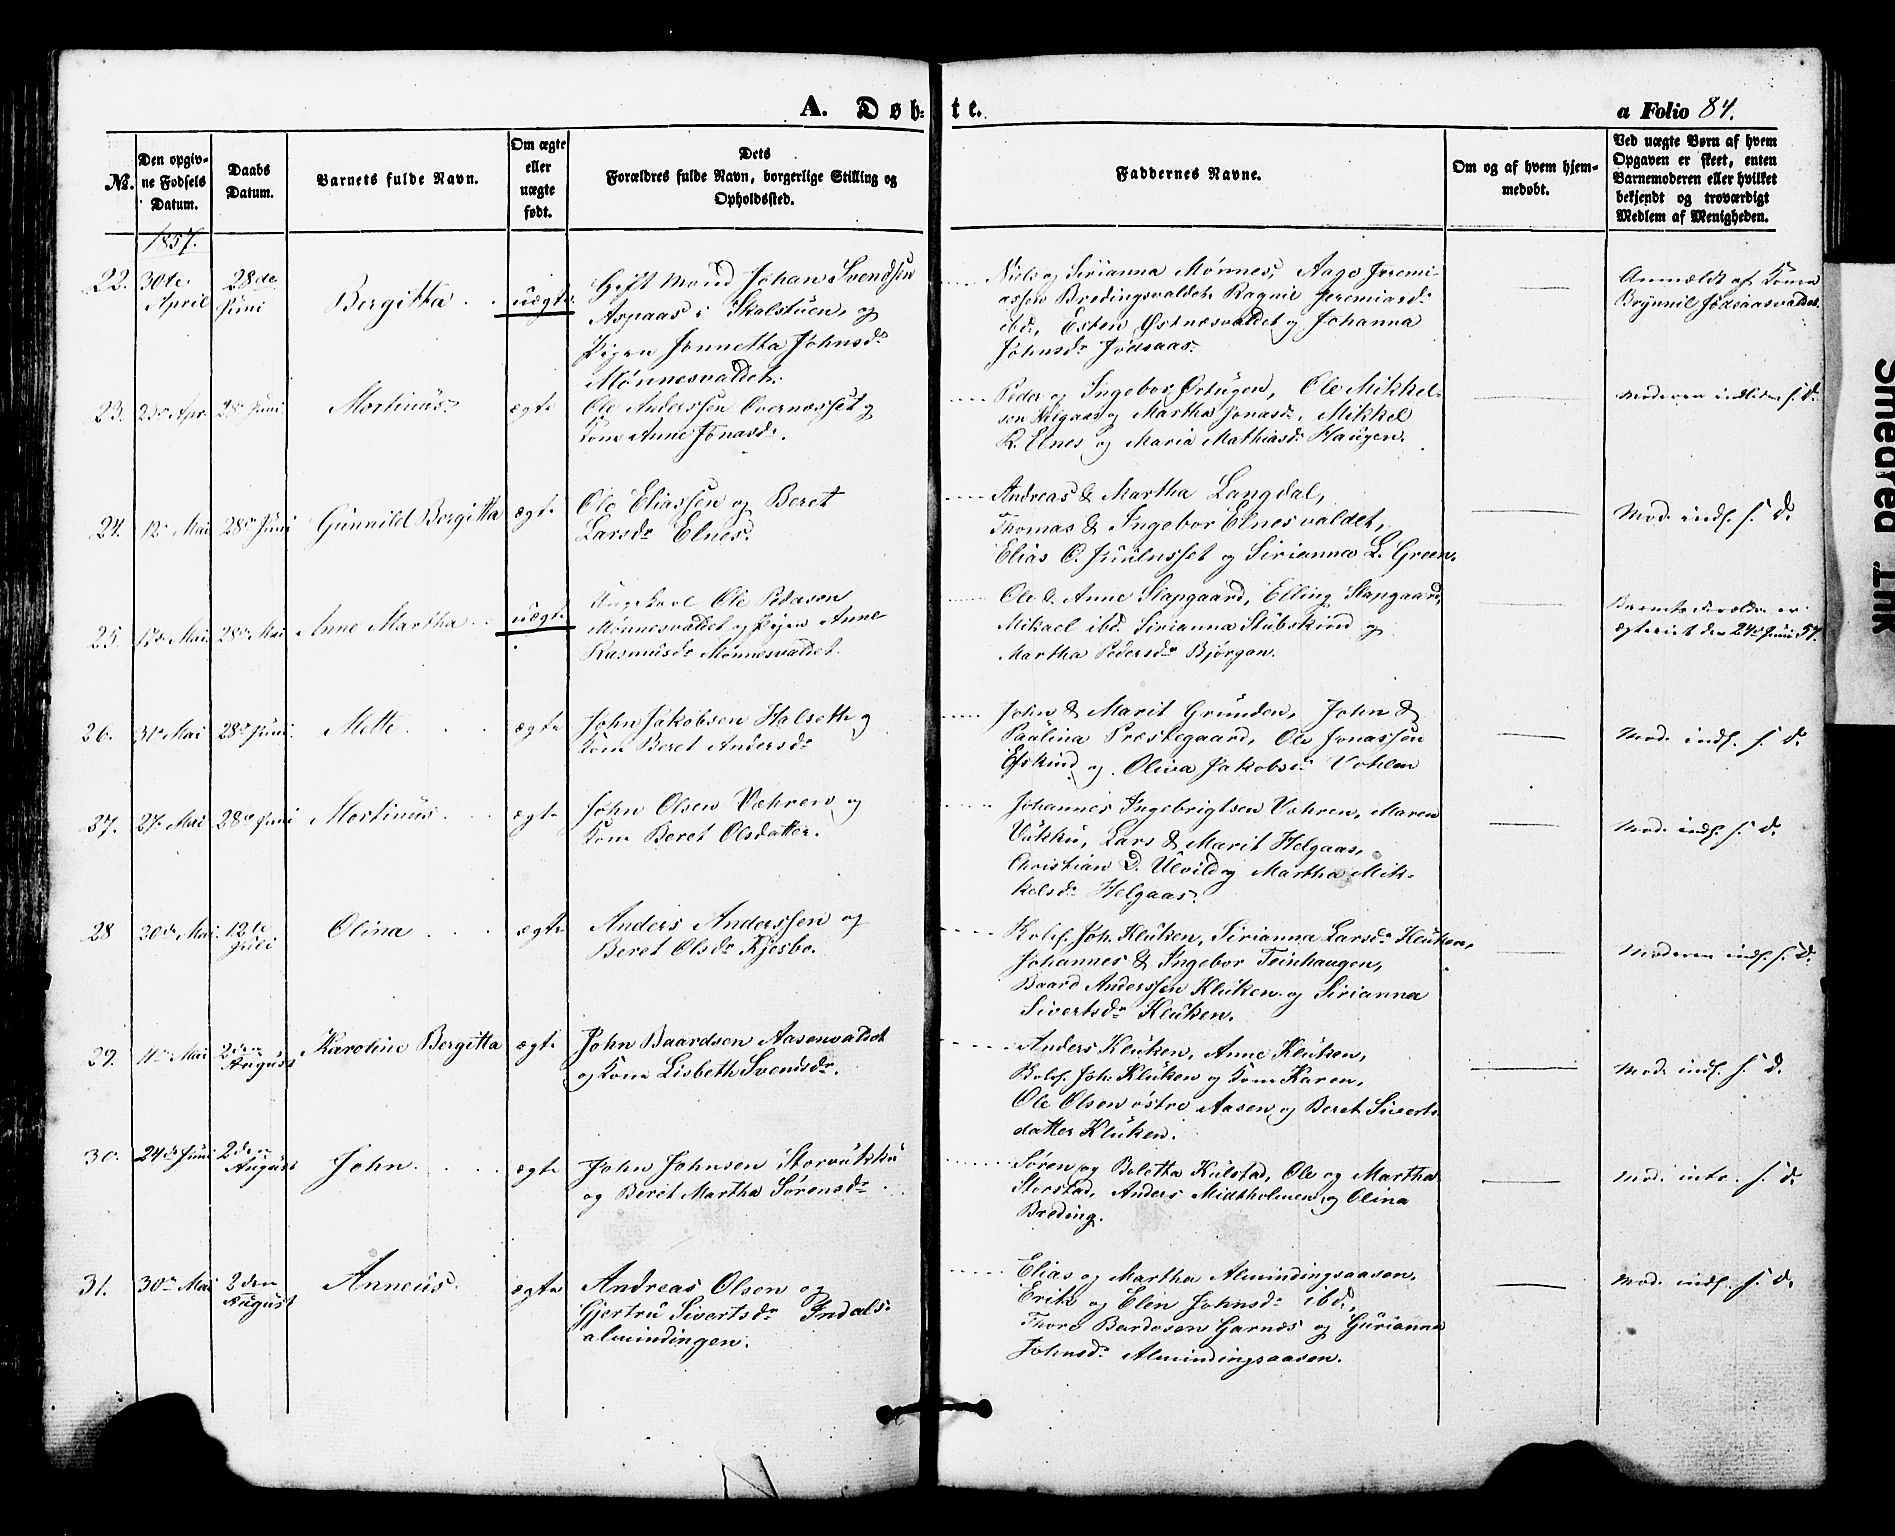 A. Døb-
te.
a Folio 84.
№.
Den opgiv-
ne Fødsels
Datum.
Daabs
Datum.
Barnets fulde Navn.
Om ægte
eller
uægte
født.
Dets
Forældres fulde Navn, borgerlige Stilling og
Opholdssted.
Faddernes Navne.
Om og af hvem hjem-
medøbt.
Ved uægte Børn af hvem
Opgaven er skeet, enten
Barnemoderen eller hvilket
bekjendt og troværdigt
Medlem af Menigheden.
1857.
22.
30te
April
28de
Juni
Bergitta
uægte
Gift Mand Johan Svendsen
Aspaas i Skalstuen, og
Pigen Jonnetta Johnsdr
Mønnesvaldet.
Niels og Sirianna Mønnes, Aage Jeremi-
assen Bredingsvaldet, Ragnil Jeremiasdr
ibd., Esten Østnesvaldet og Johanna
Johnsdr Jødsaas.
Anmældt af Konen
Brynnil Jødsaasvaldet
23.
23de Apr.
28de Juni
Mortinus
ægte
Ole Anderssen Overnesset og
Kone Anne Jonasdr.
Peder og Ingebor Ørtugen, Ole Mikkel-
sen Helgaas og Martha Jonasdr, Mikkel
R. Elnes og Maria Mathiasdr Haugen.
Moderen indleden f. D.
24.
12te Mai
28de Juni
Gunnild Bergitta
ægte
Ole Eliassen og Beret
Larsdr Elnes.
Andreas & Martha Langdal,
Thomas & Ingebor Elnesvaldet,
Elias O. og Sirianna L. Green.
Mod. indl. f. D.
25.
12te Mai
28de Mai
Anne Martha
uægte
Ungekarl Ole Pedersen
Mønnesvaldet og Pigen Anne
Rasmusdr Mønnesvaldet.
Ole & Anne Slapgaard, Elling Slapgaard,
Mikael ibd. Sirianna Stubskind og
Martha Pedersdr Bjørgan.
Barnets Forældre er
ægteviet den 24de Juni 57.
26.
31te Mai
28de Juni
Mette
ægte
John Jakobsen Halseth og
Kone Beret Andersdr
John & Marit Grunden, John &
Paulina Præstegaard, Ole Jonassen
Efskind og Oliva Jakobsdr Vohlen
Mod. indl. f. D.
37.
27de Mai
28de Juni
Mortinus
ægte
John Olsen Væhren og
Kone Beret Olsdatter.
Johannes Ingebrigtsen Vohren, Maren
Vukku, Lars & Marit Helgaas,
Christian D. Ulvild og Martha Mik-
kelsdr Helgaas.
Mod. indl. f. D.
28
20de Mai
12te
Juli
Olina
ægte
Anders Anderssen og
Beret Olsdr Kjesbo.
Kluken, Sirianna Larsdr Kluken,
Johannes & Ingebor Teinhaugen,
Baard Anderssen Kluken og Sirianna
Sivertsdr Kluken.
Moderen indl. f. D.
29.
11te Mai
2den
August
Karoline Bergitta
ægte
John Baardsen Aasenvaldet
og Kone Lisbeth Svendsdr.
Anders Kluken, Anne Kluken,
Joh. Kluken og Kone Karen,
Ole Olsen østre Aasen og Beret Siverts-
datter Kluken.
Mod. indl. f. D.
30.
24de Juni
2den
August
John
ægte
John Johnsen Storvukku
og Beret Martha Sørensdr
Søren og Boletta Kulstad, Ole og Martha
Storstad, Anders Midtholmen og Olina
Breding.
Mod. intr. f. D.
31.
30te Mai
2den
August
Anneus
ægte
Andreas Olsen og
Gjertru Sivertsdr Indals-
almindingen.
Elias og Martha Almindingsaasen,
Erik og Elen Johnsdr ibd.,
Thore Bardosen Garnæs og Gurianna
Johnsdr Almindingsaasen.
Mod. indl. f. D.
Smeared Ink